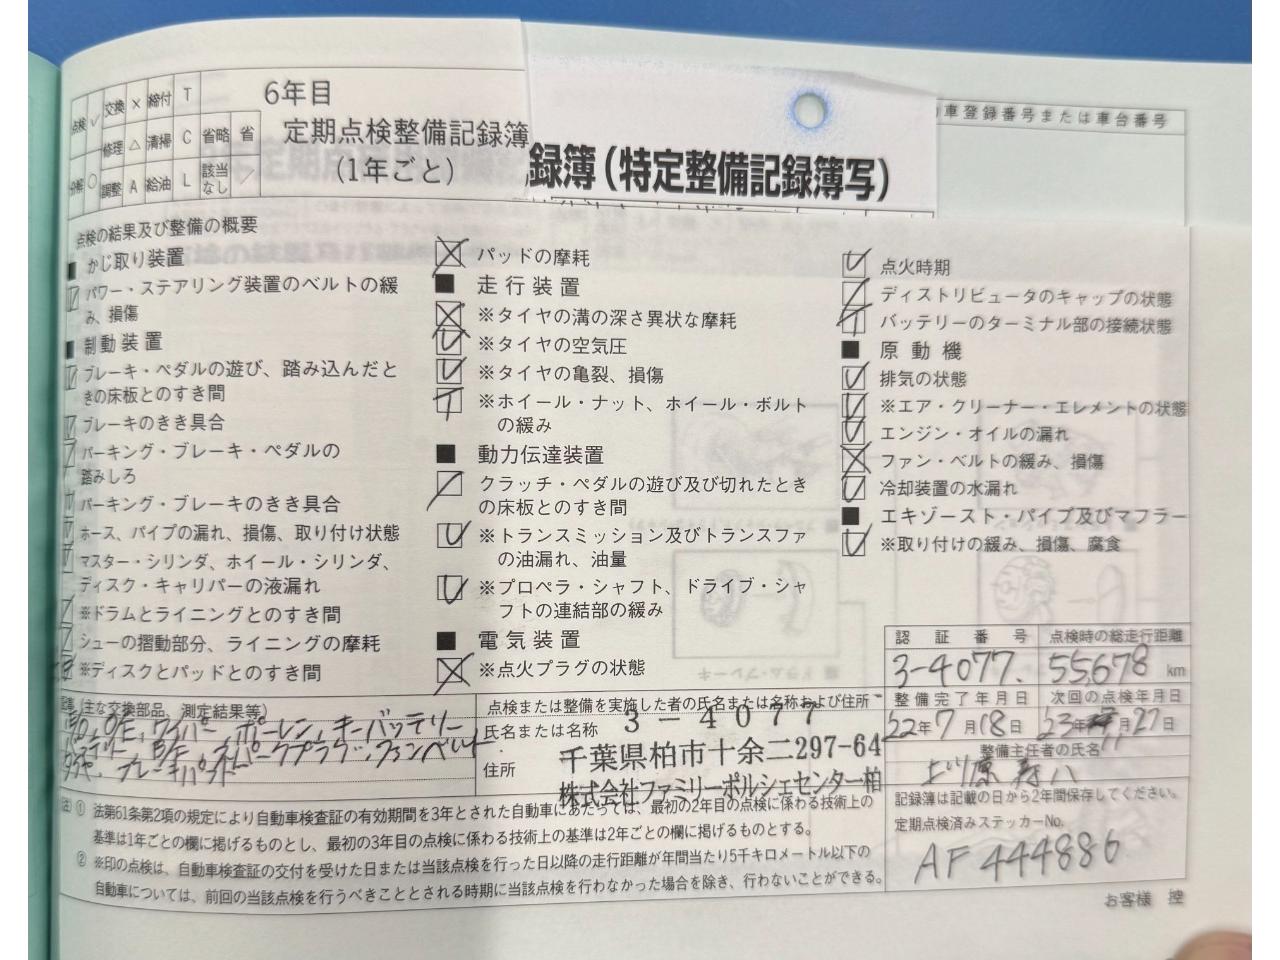 点検 ✓ 交換 × 締付 T
修理 △ 清掃 C 省略 省
分解 ○ 調整 A 給油 L 該当なし
6年目
定期点検整備記録簿
(1年ごと)
録簿(特定整備記録簿写)
車登録番号または車台番号
点検の結果及び整備の概要
■ かじ取り装置
パワー・ステアリング装置のベルトの緩
み、損傷
■ 制動装置
ブレーキ・ペダルの遊び、踏み込んだと
きの床板とのすき間
ブレーキのきき具合
パーキング・ブレーキ・ペダルの
踏みしろ
パーキング・ブレーキのきき具合
ホース、パイプの漏れ、損傷、取り付け状態
マスター・シリンダ、ホイール・シリンダ、
ディスク・キャリパーの液漏れ
※ドラムとライニングとのすき間
シューの摺動部分、ライニングの摩耗
※ディスクとパッドとのすき間
パッドの摩耗
■ 走行装置
※タイヤの溝の深さ異状な摩耗
※タイヤの空気圧
※タイヤの亀裂、損傷
T ※ホイール・ナット、ホイール・ボルト
の緩み
■ 動力伝達装置
クラッチ・ペダルの遊び及び切れたとき
の床板とのすき間
※トランスミッション及びトランスファ
の油漏れ、油量
※プロペラ・シャフト、ドライブ・シャ
フトの連結部の緩み
■ 電気装置
※点火プラグの状態
点火時期
ディストリビュータのキャップの状態
T バッテリーのターミナル部の接続状態
■ 原動機
排気の状態
※エア・クリーナー・エレメントの状態
エンジン・オイルの漏れ
ファン・ベルトの緩み、損傷
冷却装置の水漏れ
■ エキゾースト・パイプ及びマフラー
※取り付けの緩み、損傷、腐食
(主な交換部品、測定結果等)
ワイパー、ポーレン、キーバッテリー
スパークプラグ、ファンベルト
ブレーキパット
点検または整備を実施した者の氏名または名称および住所
氏名または名称
3-4077
住所
千葉県柏市十余二297-64
株式会社ファミリーポルシェセンター柏
認証番号 点検時の総走行距離
3-4077. 55,678 km
整備完了年月日 次回の点検年月日
22年7月18日 23年 月27日
整備主任者の氏名
記録簿は記載の日から2年間保存してください。
定期点検済みステッカーNo.
AF444886
注) ① 法第61条第2項の規定により自動車検査証の有効期間を3年とされた自動車にあたっては、最初の2年目の点検に係わる技術上の
基準は1年ごとの欄に掲げるものとし、最初の3年目の点検に係わる技術上の基準は2年ごとの欄に掲げるものとする。
② ※印の点検は、自動車検査証の交付を受けた日または当該点検を行った日以降の走行距離が年間当たり5千キロメートル以下の
自動車については、前回の当該点検を行うべきこととされる時期に当該点検を行わなかった場合を除き、行わないことができる。
お客様 控